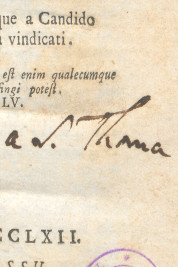 que a Candido
vindicati.
est enim qualecumque
fingi potest.
LV.
a S. Thoma
CCLXII.